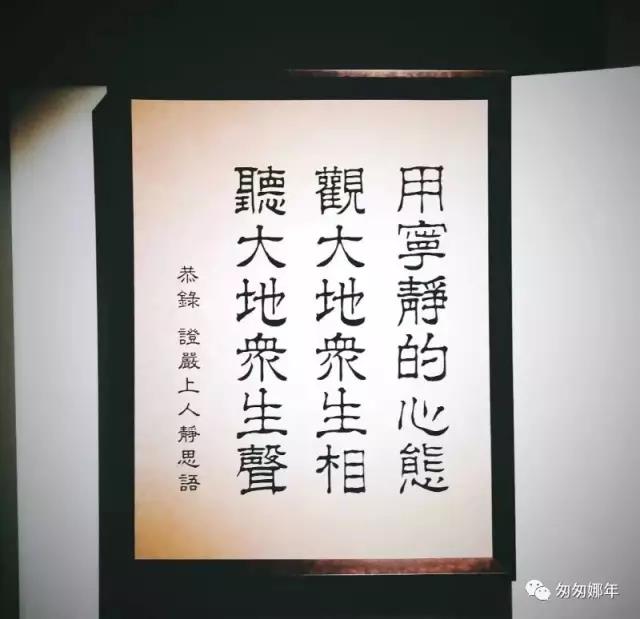 用寧靜的心態
觀大地衆生相
聽大地衆生聲
恭錄 證嚴上人靜思語
匆匆娜年